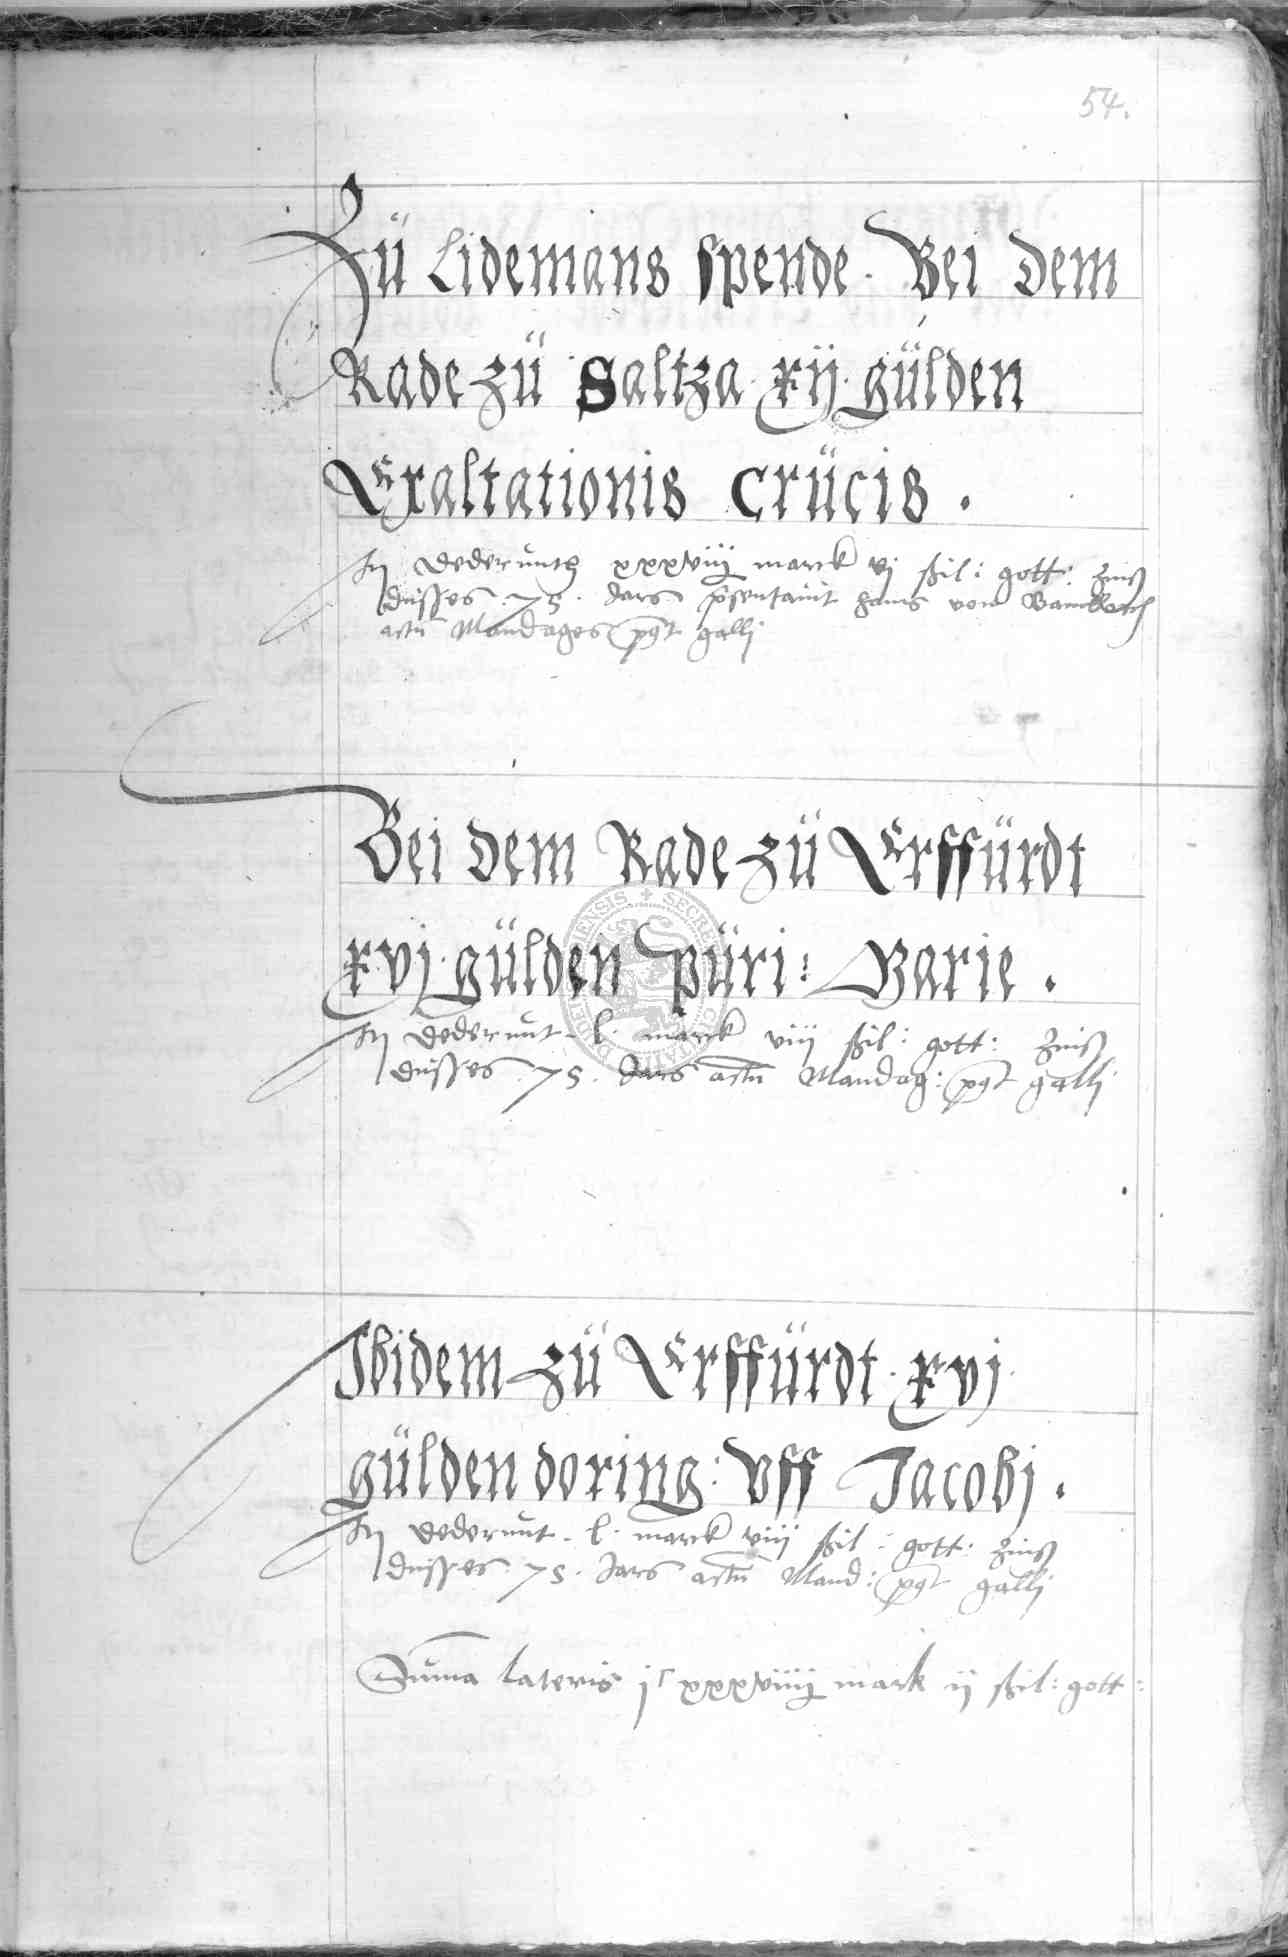 54.
Zü Lidemans spende. Bei dem
Rade zü Saltza. xij. gülden
Exaltationis Crücis.
Hij dederunth xxxviiij marck vj ßil: gott: Zinß
dusses. 75. Jars presentavit hans von
actum Mandages post galli
Bei dem Rade zü Erffürdt
xvj gülden püri: Marie.
Hij dederunt. l. marck viij ßil: gott: Zinß
dusses. 75. Jars actum Mandag: post galli
Ibidem zü Erffürdt. xvj.
gülden doring: vff Jacobj.
Hij dederunt. l. marck viij ßil: gott: Zinß
dusses. 75. Jars actum Mand: post galli
Summa lateris jc xxxviiij mark ij ßil: gott: